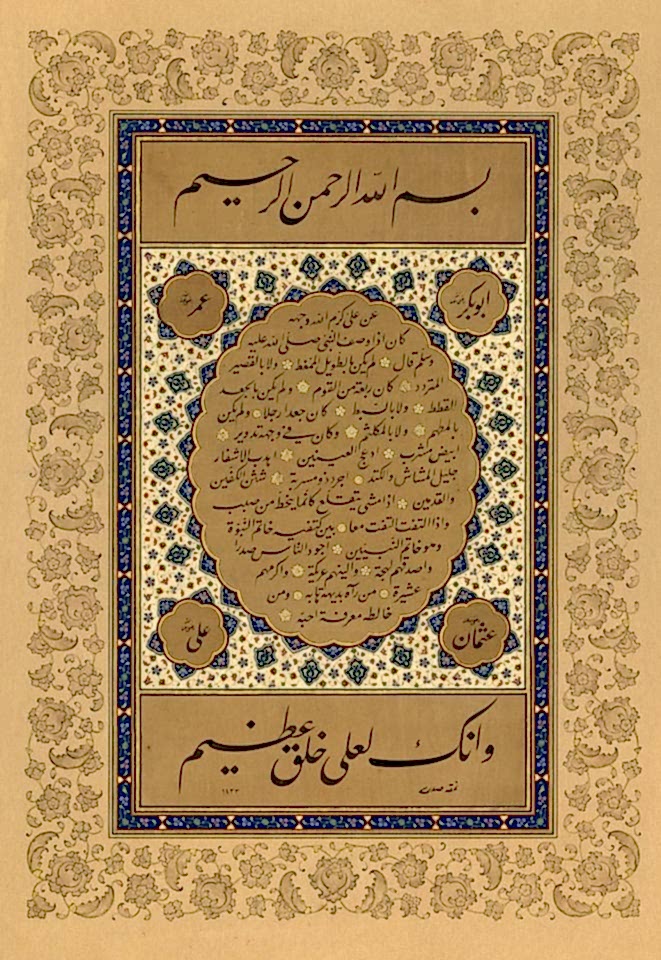 بسم الله الرحمن الرحيم
ابوبكر
عمر
عن علي كرم الله وجهه
كان اذا وصف النبي صلى الله عليه
وسلم قال لم يكن بالطويل الممغط ولا بالقصير
المتردد كان ربعة من القوم ولم يكن بالجعد
القطط ولا بالسبط كان جعدا رجلا ولم يكن
بالمطهم ولا بالمكلثم وكان في وجهه تدوير
ابيض مشرب ادعج العينين اهدب الاشفار
جليل المشاش والكتد اجرد ذو مسربة شثن الكفين
والقدمين اذا مشى يتقلع كانما ينحط من صبب
واذا التفت التفت معا بين كتفيه خاتم النبوة
وهو خاتم النبيين اجود الناس صدرا
واصدقهم لهجة والينهم عريكة واكرمهم
عشيرة من رآه بديهة هابه ومن
خالطه معرفة احبه
عثمان
علي
وانك لعلى خلق عظيم
١٤٢٣